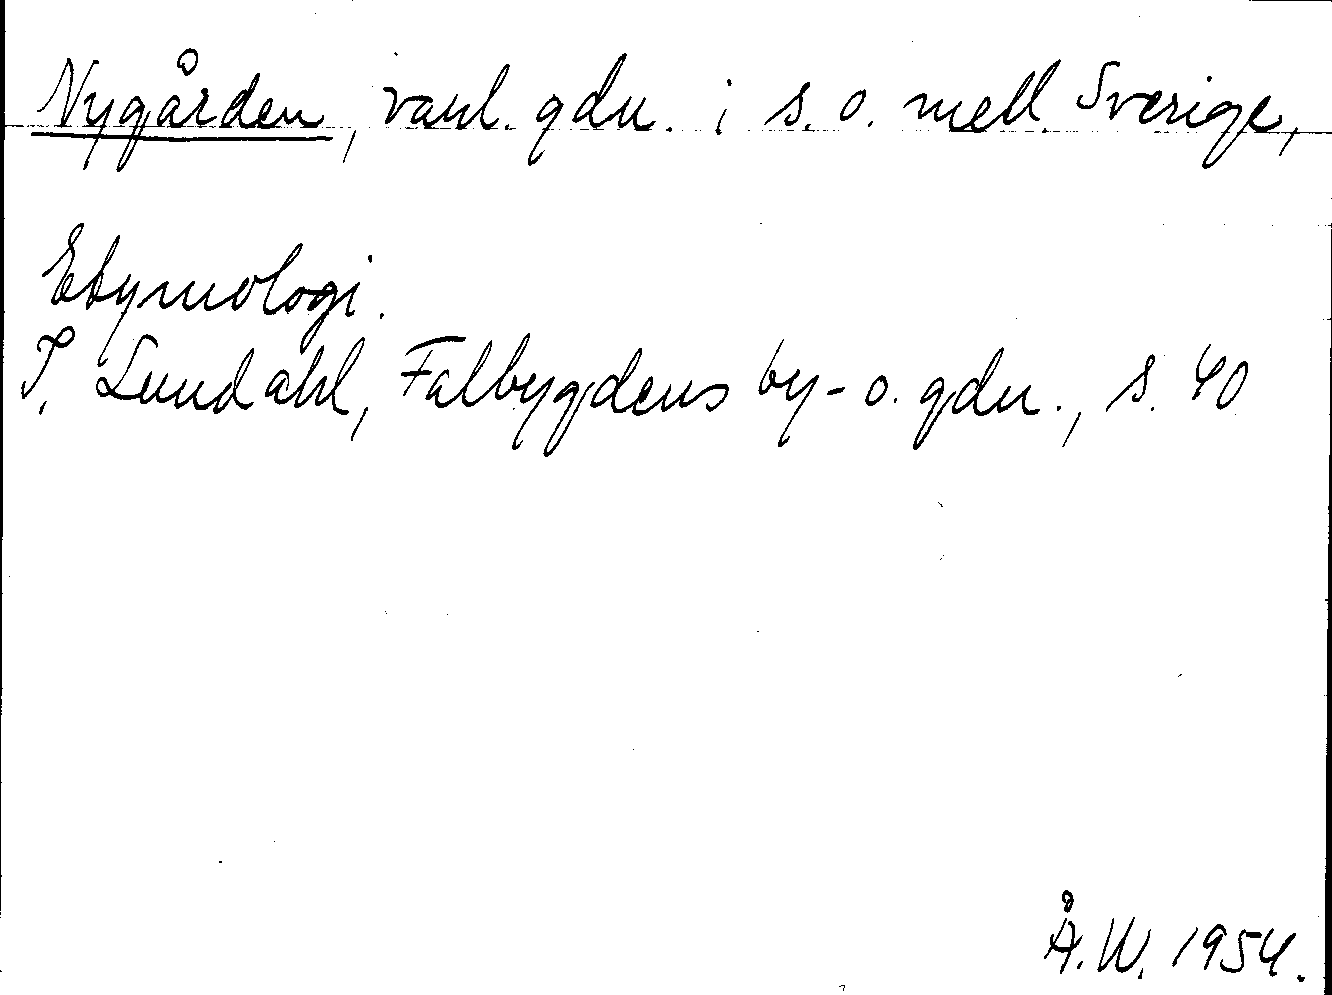 Nygården, vanl. gdn. i s. o. mell. Sverige,
Etymologi.
I. Lundahl, Falbygdens by- o. gdn., s. 40
Å.W. 1954.